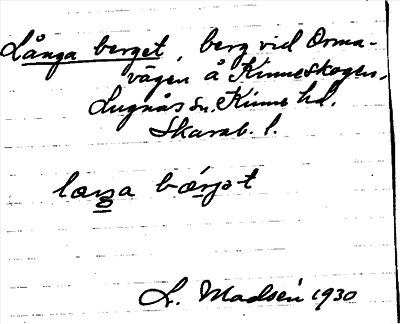 Långa berget, berg vid Orma-
vägen å Kinneskogen,
Lugnås sn. Kinne hd.
Skarab. l.
berget
L. Madsén 1930